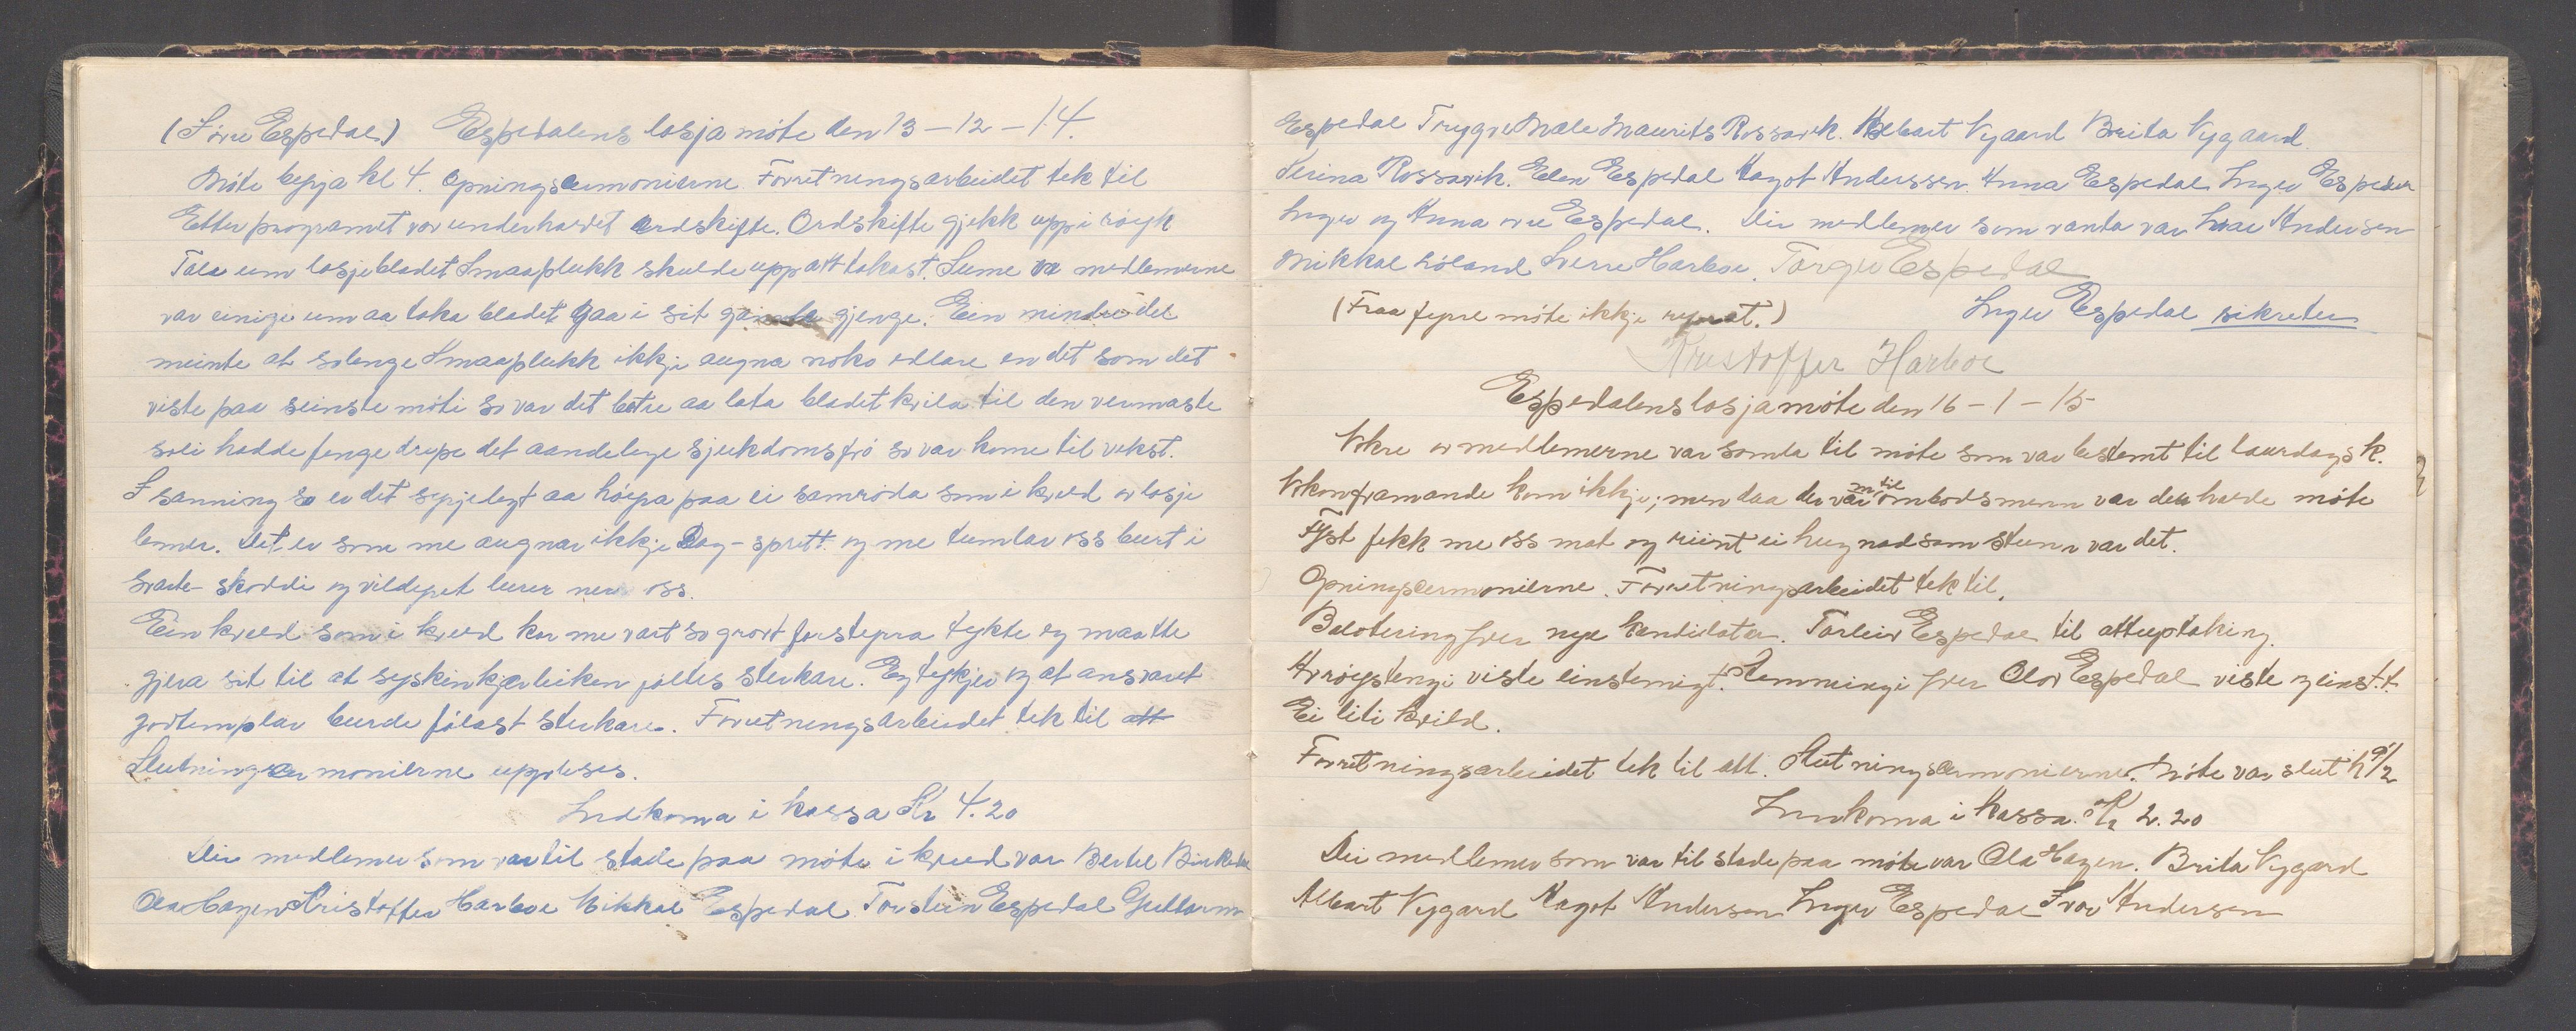 (I øvre Espedal) Espedalens losja møte den 13-12-14.
Møte byrja kl 4. Opningscermonierne. Forretningsarbeidet tek til
Etter programet var underhaldet ordskifte. Ordskifte gjekk upp i røyk
Tala um losjebladet Smaaplukk skulde upp att takast. Sume av medlemerne
var einige um aa taka bladet gaa i sit gamle gjenge. Ein mindre del
meinte at solenge Smaaplukk ikkje augna noko edlare en det som det
viste paa seinste møti so var det betre aa lata bladet kvila til den varmaste
soli hadde fenge drepe det aandelege sjukdomsfrø so var kome til vekst.
I sanning so er det syrjelegt aa høyra paa ei samrøda som i kveld av losje
lemer. Det er som me augnar ikkje Dag-sprett og me tumlar oss burt i
svarte skoddi og vildyret lurer nær oss.
Ein kveld som i kveld kor me vart so grovt forstyrra tykte eg maatte
gjera sit til at syskinkjærleiken føltes sterkare. Eg tykjer og at ansvaret
godtemplar burde følast sterkare. Forretningsarbeidet tek til att
Slutningscermonierne upploses.
Indkoma i kassa Kr 4.20
Dei medlemer som var til stade paa møte i kveld var Bertel Birkedal
Ola Hagen Kristoffer Harboe Mikkal Espedal Torstein Espedal Guttorm
Espedal Trygve Mæle Maurits Rossavik. Albart Nygaard Brita Nygaard.
Serina Rossavik. Elen Espedal Hagot Anderssen. Anna Espedal Inger Espedal
Inger og Anna øvre Espedal. Dei medlemer som vanta var Ivar Andersen
Mikkal Røland Sverre Harboe. Torger Espedal
(Fraa fyrre møte ikkje uppsat.) Inger Espedal sikretær
Kristoffer Harboe
Espedalens losja møte den 16-1-15
Nokre av medlemerne var samla til møte som var bestemt til laurdags k.
Nokon framande kom ikkje; men daa der var m til ombodsmenn var den halde møte
Fyst fekk me oss mat og riint ei hugnadsam stunn var det.
Opningscermonierne. Forretningsarbeidet tek til.
Balotering yver nye kandidater. Torleiv Espedal til attupptaking.
Avrøystengi viste einstemigt. Stemmingi yver Olav Espedal viste og einst.t.
Ei liti kvild.
Forretningsarbeidet tek til att. Slutningscermonierne. Møte var slut kl 9 1/2
Innkoma i kassa. Kr 2.20
Dei medlemer som var til stade paa møte var Ola Hagen. Brita Nygard
Albart Nygard Hagot Andersen Inger Espedal Ivar Andersen